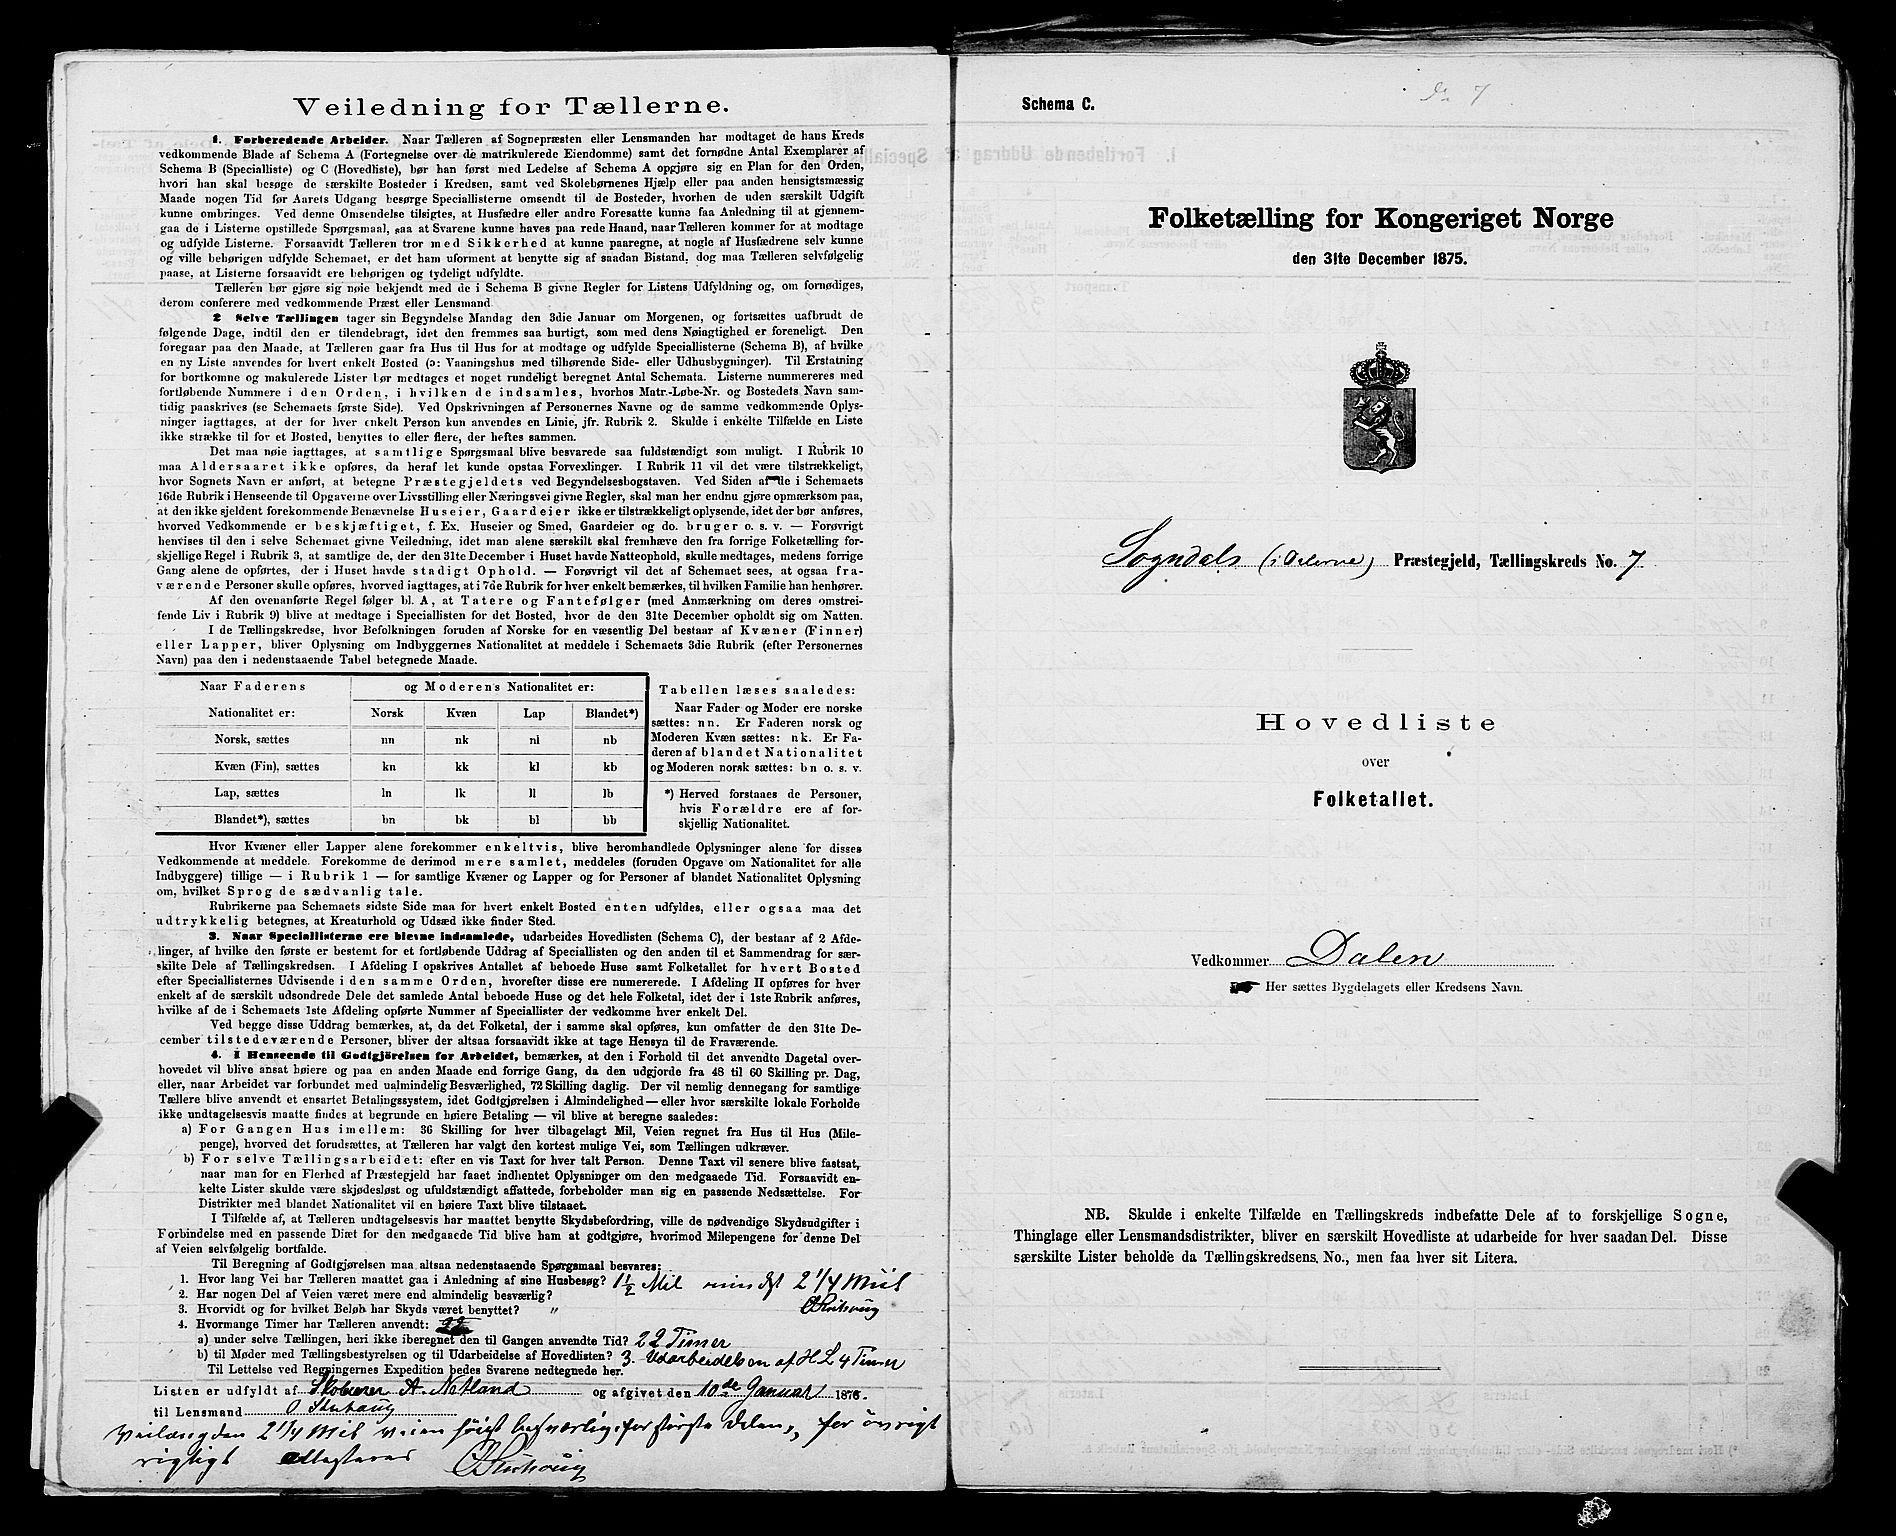 Veiledning for Tællerne.
1. Forberedende Arbeider. Naar Tælleren af Sognepræsten eller Lensmanden har modtaget de hans Kreds
vedkommende Blade af Schema A (Fortegnelse over de matrikulerede Eiendomme) samt det fornødne Antal Exemplarer af
Schema B (Specialliste) og C (Hovedliste), bør han først med Ledelse af Schema A opgjøre sig en Plan for den Orden,
hvori han skal besøge de særskilte Bosteder i Kredsen, samt ved Skolebørnenes Hjælp eller paa anden hensigtsmæssig
Maade nogen Tid før Aarets Udgang besørge Speciallisterne omsendt til de Bosteder, hvorhen de uden særskilt Udgift
kunne ombringes. Ved denne Omsendelse tilsigtes, at Husfædre eller andre Foresatte kunne faa Anledning til at gjennem-
gaa de i Listerne opstillede Spørgsmaal, saa at Svarene kunne haves paa rede Haand, naar Tælleren kommer for at modtage
og udfylde Listerne. Forsaavidt Tælleren tror med Sikkerhed at kunne paaregne, at nogle af Husfædrene selv kunne
og ville behørigen udfylde Schemaet, er det ham uforment at benytte sig af saadan Bistand, dog maa Tælleren selvfølgelig
paase, at Listerne forsaavidt ere behørigen og tydeligt udfyldte.
Tælleren bør gjøre sig nøie bekjendt med de i Schema B givne Regler for Listens Udfyldning og, om fornødiges,
derom conferere med vedkommende Præst eller Lensmand.
2 Selve Tællingen tager sin Begyndelse Mandag den 3die Januar om Morgenen, og fortsættes uafbrudt de
følgende Dage, indtil den er tilendebragt, idet den fremmes saa hurtigt, som med dens Nøiagtighed er foreneligt. Den
foregaar paa den Maade, at Tælleren gaar fra Hus til Hus for at modtage og udfylde Speciallisterne (Schema B), af hvilke
en ny Liste anvendes for hvert enkelt Bosted (ɔ: Vaaningshus med tilhørende Side- eller Udhusbygninger). Til Erstatning
for bortkomne og makulerede Lister bør medtages et noget rundeligt beregnet Antal Schemata. Listerne nummereres med
fortløbende Nummere i den Orden, i hvilken de indsamles, hvorhos Matr.-Løbe-Nr. og Bostedets Navn sam-
tidig paaskrives (se Schemaets første Side). Ved Opskrivningen af Personernes Navne og de samme vedkommende Oplys-
ninger iagttages, at der for hver enkelt Person kun anvendes en Linie, jfr. Rubrik 2. Skulde i enkelte Tilfælde en Liste
ikke strække til for et Bosted, benyttes to eller flere, der heftes sammen.
Det maa nøie iagttages, at samtlige Spørgsmaal blive besvarede saa fuldstændigt som muligt. I Rubrik 10
maa Aldersaaret ikke opføres, da heraf let kunde opstaa Forvexlinger. I Rubrik 11 vil det være tilstrækkeligt,
hvor Sognets Navn er anført, at betegne Præstegjeldets ved Begyndelsesbogstaven. Ved Siden af de i Schemaets
16de Rubrik i Henseende til Opgaverne over Livsstilling eller Næringsvei givne Regler, skal man her endnu gjøre opmærksom paa,
at den ikke sjeldent forekommende Benævnelse Huseier, Gaardeier ikke er tilstrækkeligt oplysende, idet der bør anføres,
hvorved Vedkommende er beskjæftiget, f. Ex. Huseier og Smed, Gaardeier og do. bruger o. s. v. — Forøvrigt
henvises til den i selve Schemaet givne Veiledning, idet man alene særskilt skal fremhæve den fra forrige Folketælling for-
skjellige Regel i Rubrik 3, at samtlige de, der den 31te December i Huset havde Natteophold, skulle medtages, medens forrige
Gang alene de opførtes, der i Huset havde stadigt Ophold. — Forøvrigt vil det af Schemaet sees, at ogsaa fra-
værende Personer skulle opføres, hvorved iagttages, at i 7de Rubrik for hver enkelt bemærkes, til hvilken Familie han henhører.
Af den ovenanførte Regel følger bl. A, at Tatere og Fantefølger (med Anmærkning om deres omstrei-
fende Liv i Rubrik 9) blive at medtage i Speciallisten for det Bosted, hvor de den 31te December opholdt sig om Natten.
I de Tællingskredse, hvor Befolkningen foruden af Norske for en væsentlig Del bestaar af Kvæner (Finner)
eller Lapper, bliver Oplysning om Indbyggernes Nationalitet at meddele i Schemaets 3die Rubrik (efter Personernes
Navn) paa den i nedenstaaende Tabel betegnede Maade.
Naar Faderens og Moderens Nationalitet er:
Nationalitet er: Norsk Kvæn Lap Blandet*)
Norsk, sættes nn nk nl nb
Kvæn (Fin), sættes kn kk kl kb
Lap, sættes ln lk ll lb
Blandet*), sættes bn bk bl bb
Tabellen læses saaledes:
Naar Fader og Moder ere norske
sættes: nn. Er Faderen norsk og
Moderen Kvæn sættes: nk. Er Fa-
deren af blandet Nationalitet
og Moderen norsk sættes: bn o. s. v.
*) Herved forstaaes de Personer,
hvis Forældre ere af for-
skjellig Nationalitet.
Hvor Kvæner eller Lapper alene forekommer enkeltvis, blive heromhandlede Oplysninger alene for disses
Vedkommende at meddele. Forekomme de derimod mere samlet, meddeles (foruden Opgave om Nationalitet for alle
Indbyggere) tillige — i Rubrik 1 — for samtlige Kvæner og Lapper og for Personer af blandet Nationalitet Oplysning
om, hvilket Sprog de sædvanlig tale.
Rubrikerne paa Schemaets sidste Side maa for hvert enkelt Bosted enten udfyldes, eller ogsaa maa det
udtrykkelig betegnes, at Kreaturhold og Udsæd ikke finder Sted.
3. Naar Speciallisterne ere blevne indsamlede, udarbeides Hovedlisten (Schema C), der bestaar af 2 Afde-
linger, af hvilke den første er bestemt for et fortløbende Uddrag af Speciallisten og den anden til et Sammendrag for sær-
skilte Dele af Tællingskredsen. I Afdeling I opskrives Antallet af beboede Huse samt Folketallet for hvert Bosted
efter Speciallisternes Udvisende i den samme Orden, hvorefter disse ere numererede. I Afdeling II opføres for hver
enkelt af de særskilt udsondrede Dele det samlede Antal beboede Huse og det hele Folketal, idet der i 1ste Rubrik anføres,
hvilke af de i Schemaets 1ste Afdeling opførte Nummer af Speciallister der vedkomme hver enkelt Del.
Ved begge disse Uddrag bemærkes, at, da det Folketal, der i samme skal opføres, kun omfatter de den 31te De-
cember tilstedeværende Personer, bliver der altsaa forsaavidt ikke at tage Hensyn til de Fraværende.
4. I Henseende til Godtgjörelsen for Arbeidet, bemærkes, at den i Forhold til det anvendte Dagetal over-
hovedet vil blive ansat høiere og paa en anden Maade end forrige Gang, da den udgjorde fra 48 til 60 Skilling pr. Dag,
eller, naar Arbeidet var forbundet med ualmindelig Besværlighed, 72 Skilling daglig. Der vil nemlig dennegang for samtlige
Tællere blive anvendt et ensartet Betalingssystem, idet Godtgjørelsen i Almindelighed — eller hvor særskilte lokale Forholde
ikke undtagelsesvis maatte findes at begrunde en høiere Betaling — vil blive at beregne saaledes:
a) For Gangen Hus imellem: 36 Skilling for hver tilbagelagt Mil, Veien regnet fra Hus til Hus (Mile-
penge), hvorved det forudsættes, at Tælleren har valgt den kortest mulige Vei, som Tællingen udkræver.
b) For selve Tællingsarbeidet: efter en vis Taxt for hver talt Person. Denne Taxt vil senere blive fastsat,
naar man for en Flerhed af Præstegjeld har faaet indhentet Oplysninger om den medgaaede Tid. Forsaavidt en-
kelte Lister skulde være skjødesløst og ufuldstændigt affattede, forbeholder man sig en passende Nedsættelse. For
Distrikter med blandet Nationalitet vil en høiere Taxt blive tilstaaet.
I Tilfælde af, at Tælleren undtagelsesvis har maattet benytte Skydsbefordring, ville de nødvendige Skydsudgifter i
Forbindelse med en passende Diæt for den medgaaede Tid blive ham at godtgjøre, hvorimod Milepengene for denne Del
af Veien selvfølgelig bortfalde.
Til Beregning af Godtgjørelsen maa altsaa nedenstaaende Spørgsmaal besvares:
1. Hvor lang Vei har Tælleren maattet gaa i Anledning af sine Husbesøg? 1½ Mil mindst 2 1/4 Miil
2. Har nogen Del af Veien været mere end almindelig besværlig?
3. Hvorvidt og for hvilket Beløb har Skyds været benyttet? "
4. Hvormange Timer har Tælleren anvendt: 22
a) under selve Tællingen, heri ikke iberegnet den til Gangen anvendte Tid? 22 Timer
b) til Møder med Tællingsbestyrelsen og til Udarbeidelse af Hovedlisten? 3. Udarbeidelsen af H L 4 Timer
Til Lettelse ved Regningernes Expedition bedes Svarene nedtegnede her.
Listen er udfyldt af A. Netland og afgivet den 10de Januar 1876.
til Lensmand
Veilængden 2 1/4 Mil veien höist besværlig for største Delen, for övrigt
rigtigt attesteres
Schema C.
7
Folketælling for Kongeriget Norge
den 31te December 1875.
Sogndals (i Dalerne) Præstegjeld, Tællingskreds No. 7
Hovedliste
over
Folketallet.
Vedkommer Dalen
Her sættes Bygdelagets eller Kredsens Navn.
NB. Skulde i enkelte Tilfælde en Tællingskreds indbefatte Dele af to forskjellige Sogne,
Thinglage eller Lensmandsdistrikter, bliver en særskilt Hovedliste at udarbeide for hver saadan Del. Disse
særskilte Lister beholde da Tællingskredsens No., men faa hver sit Litera.